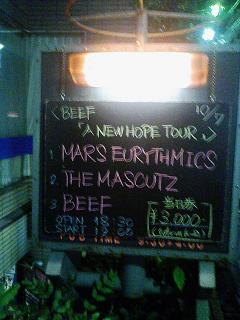 <BEEF 10/7
A NEW HOPE TOUR>
1. MARS EURYTHMICS
2. THE MASCUTZ
3. BEEF
当日券
¥3,000-
OPEN 18:30
START 19:00
TIME